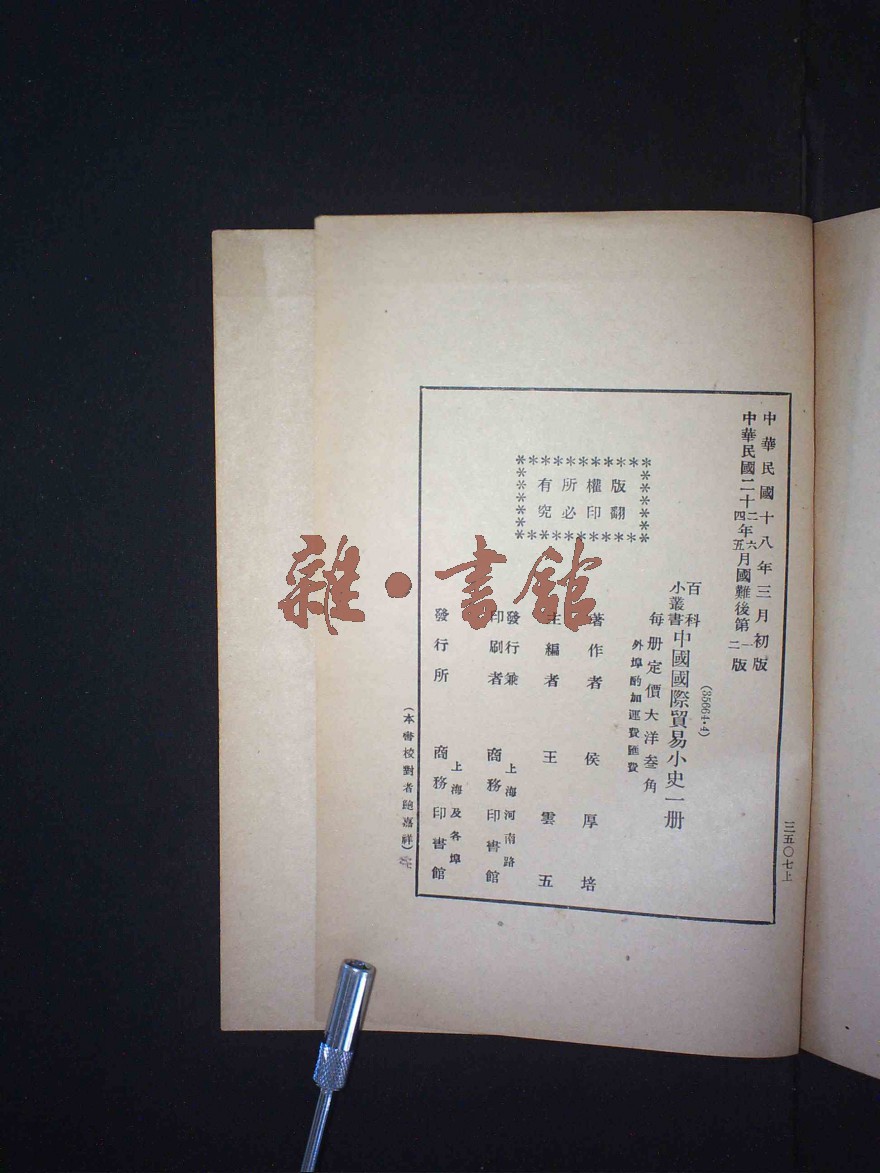 中華民國十八年三月初版
中華民國二十二四年六五月國難後第一二版
(35664·4)
百科小叢書 中國國際貿易小史一册
每册定價大洋叁角
外埠酌加運費匯費
版權所有
翻印必究
著作者 侯厚培
主編者 王雲五
發行兼印刷者 上海河南路 商務印書館
發行所 上海及各埠 商務印書館
(本書校對者鮑嘉祥)
三五〇七上
雜·書館